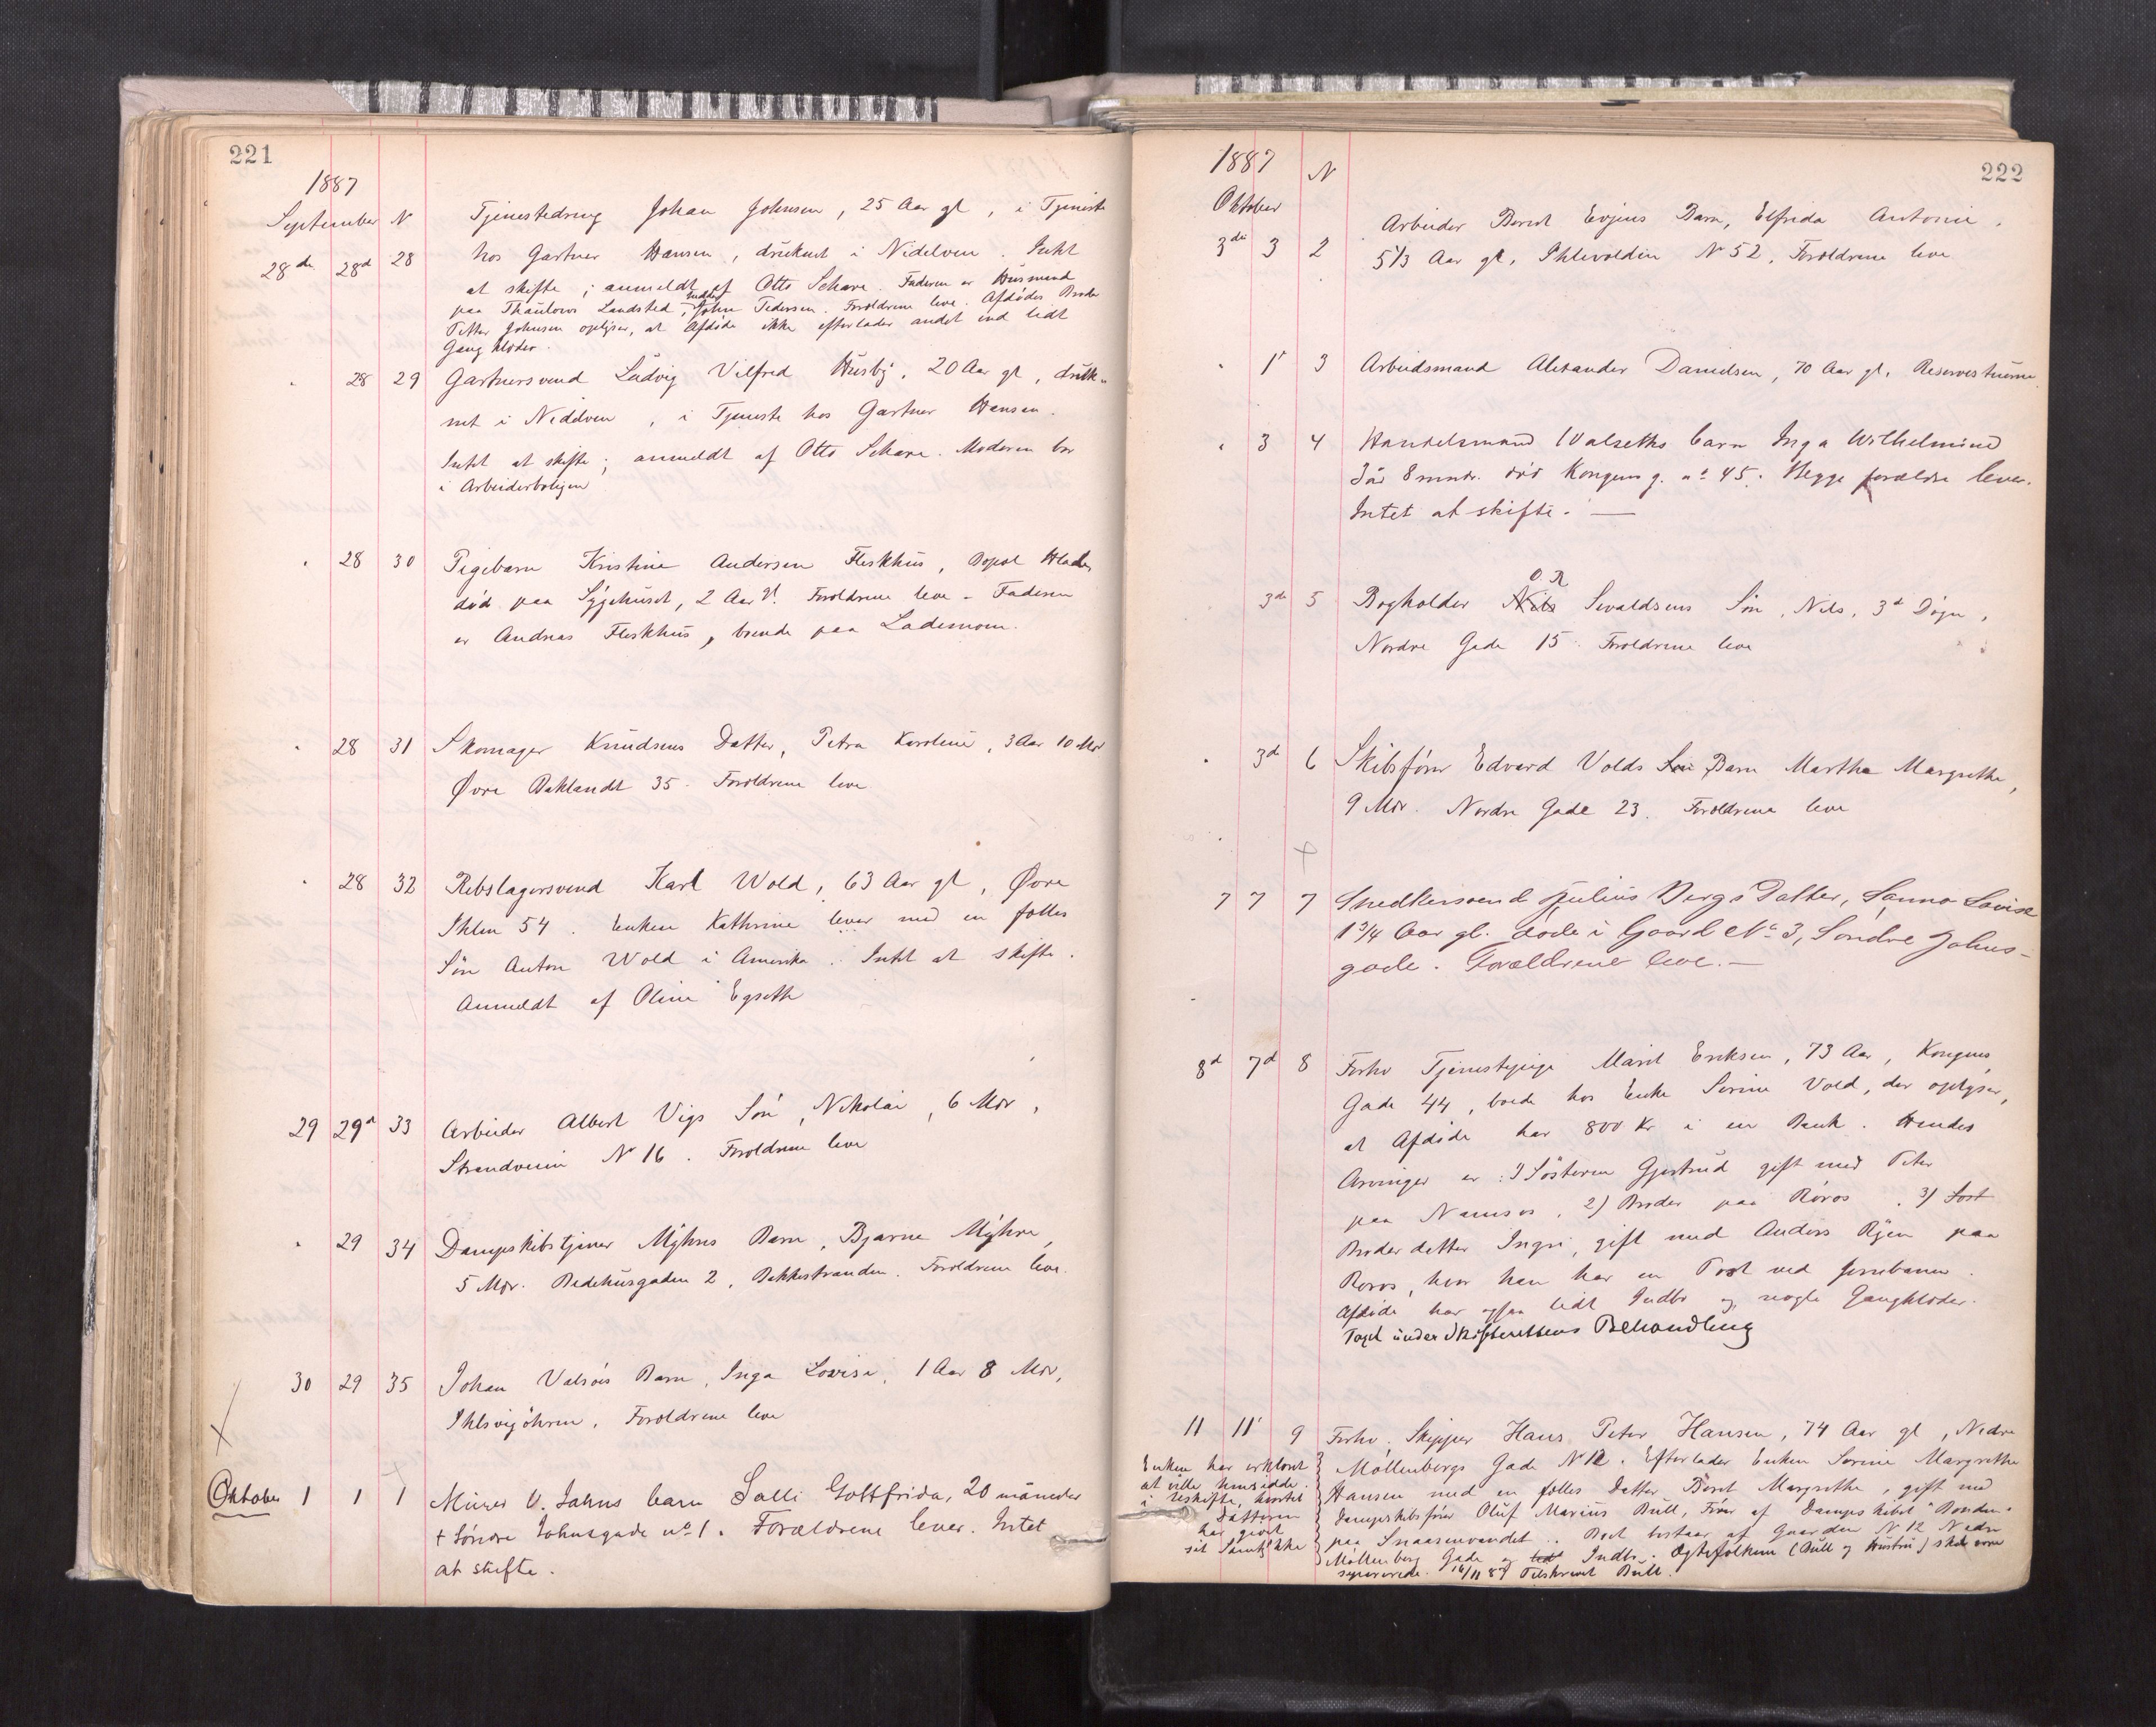 221
1887
September N Tjenestedreng Johan Johnsen, 25 Aar gl, i Tjeneste
28de 28d 28 hos Gartner Hansen, druknet i Nidelven. Intet
at skifte; anmeldt af Otto Schare. Faderen er Husmand
paa Thaulows Landsted, John Pedersen. Forældrene leve. Afdødes Broder
Petter Johnsen oplyser, at Afdøde ikke efterlader andet end lidt
Gangklæder.
" 28 29 Gartnersvend Ludvig Vilfred Husby, 20 Aar gl, druk-
net i Nidelven, i Tjeneste hos Gartner Hansen.
Intet at skifte; anmeldt af Otto Schare. Moderen bor
i Arbeiderboligen
" 28 30 Pigebarn Kristine Andersen Fleskhus, Bopæl Hlade,
død paa Sygehuset, 2 Aar gl. Forældrene leve - Faderen
er Andreas Fleskhus, boende paa Lademoen.
" 28 31 Skomager Knudsens Datter, Petra Karoline, 3 Aar 10 Mdr
Øvre Baklandt 35. Forældrene leve
" 28 32 Rebslagersvend Karl Wold, 63 Aar gl, Øvre
Ihlen 54. Enken Kathrine lever med en fælles
Søn Anton Wold i Amerika. Intet at skifte.
Anmeldt af Oline Egseth
29 29d 33 Arbeider Albert Vigs Søn, Nikolai, 6 Mdr,
Strandveien No 16. Forældrene leve
" 29 34 Dampskibstjener Myhres Barn, Bjarne Myhre,
5 Mdr. Bedehusgaden 2, Bakkestranden. Forældrene leve.
30 29 35 Johan Valsøes Barn, Inga Lovise, 1 Aar 8 Mdr,
Ihlsvigøhren. Forældrene leve
Oktober 1 1 1 Murer V. Jahns barn Salli Gottfrida, 20 måneder
+ Søndre Johnsgade no 1. Forældrene lever. Intet
at skifte.
222
1887 N
Oktober Arbeider Berndt Evjens Barn, Elfrida Antonie,
3die 3 2 5 1/3 Aar gl, Ihlevolden No 52, Forældrene leve
" 1' 3 Arbeidsmand Alexander Danielsen, 70 Aar gl, Reservestuerne
" 3 4 Handelsmand Valseths barn Inga Wilhelmine
3 år 8 mndr. død Kongens g. no 45. Begge forældre lever.
Intet at skifte. —
O. R
3de 5 Bogholder Nils Sivaldsens Søn, Nils, 3d Døgn,
Nordre Gade 15. Forældrene leve
" 3d 6 Skibsfører Edvard Volds Søn Barn Martha Margrethe,
9 Mdr. Nordre Gade 23. Forældrene leve
7 7 7 Snedkersvend Julius Bergs Datter, Sanna Lovise
1 3/4 Aar gl. døde i Gaard No 3, Søndre Johns-
gade. Forældrene leve. —
8d 7d 8 Forhv Tjenestepige Marit Eriksen, 73 Aar, Kongens
Gade 44, boede hos Enke Serine Vold, der oplyser,
at Afdøde har 800 Kr i en Bank. Hendes
Arvinger er: 1) Søsteren Gjertrud gift med Peter
paa Namsos, 2) Broder paa Røros. 3) Søst
Broderdatter Ingri, gift med Anders Ryen paa
Røros, hvor han har en Post ved Jernbanen.
Afdøde har ogsaa lidt Indbo og nogle Gangklæder.
Taget under Skifterettens Behandling
11 11' 9 Forhv. Skipper Hans Peter Hansen, 74 Aar gl, Nedre
Møllenbergs Gade No 12. Efterlader Enken Serine Margrethe
Hansen med en fælles Datter Beret Margrethe, gift med
Dampskibsfører Oluf Marius Bull, Fører af Dampskibet "Bonden"
paa Snaasenvandet. Boet bestaar af Gaarden No 12 Nedre
Møllenberg Gade og lidt Indbo. Ægtefolkene (Bull og Hustru) skal være
separerede. 16/11 87 Tilskrevet Bull.
Enken har erklæret
at ville hensidde
i Uskifte, hvortil
Datteren
har givet
sit Samtykke